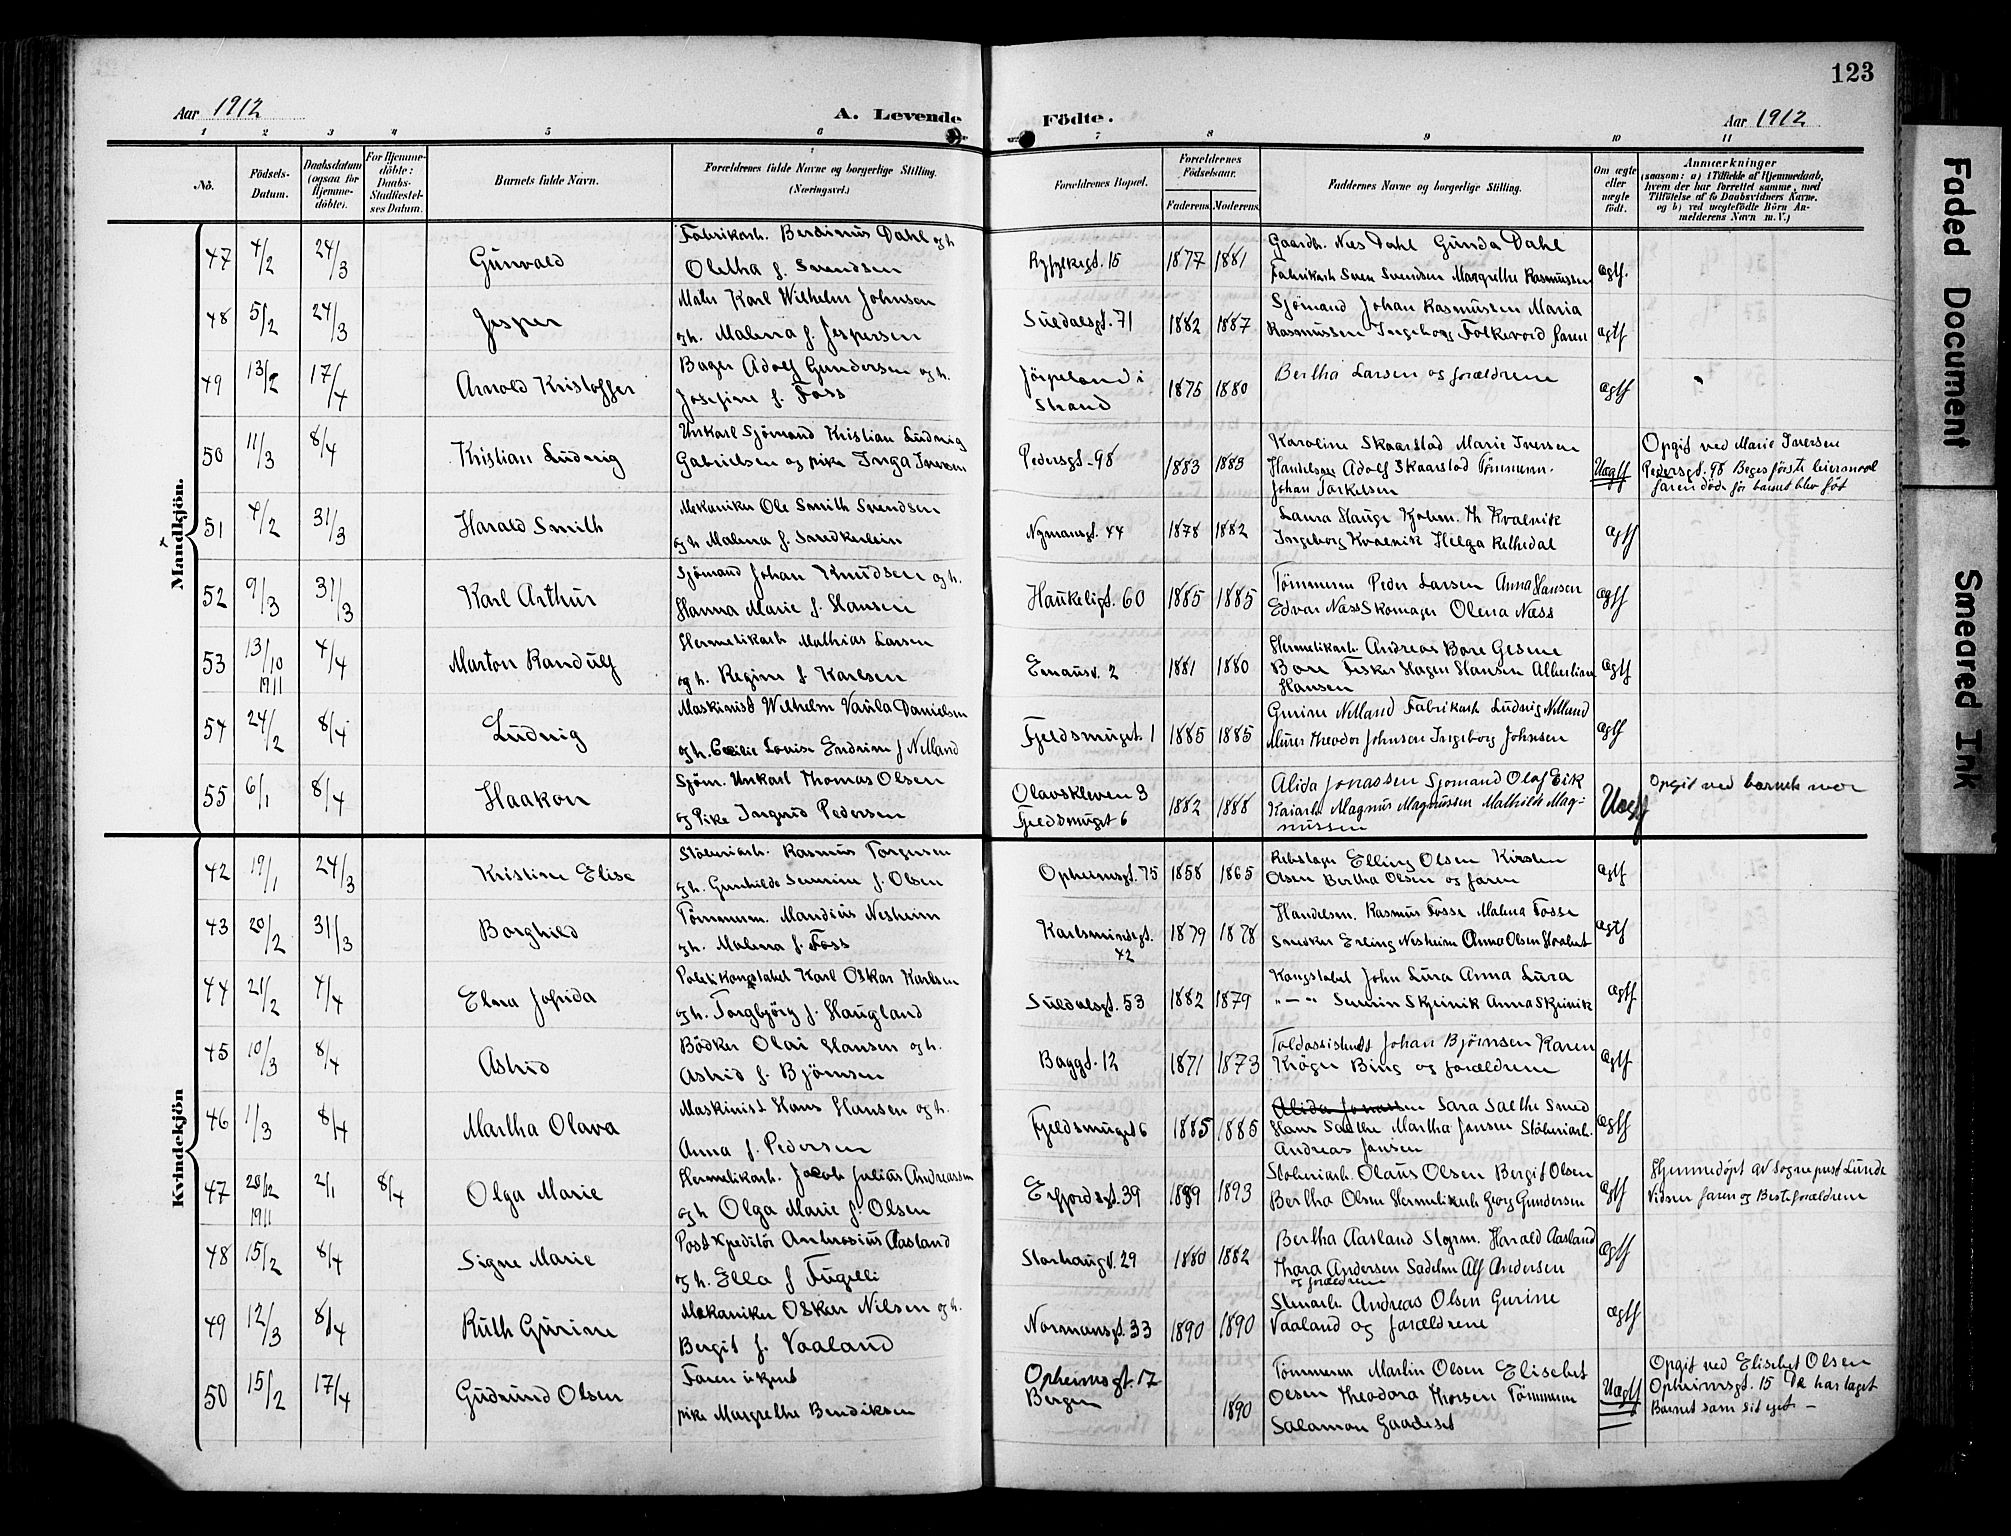 123
Aar 1912
A. Levende Födte.
Aar 1912
1 2 3 4 5 6 7 8 9 10 11
No.
Födsels-Datum.
Daabsdatum (ogsaa for Hjemme-döbte).
For Hjemme-döbte: Daabs-Stadfæstel-ses Datum.
Barnets fulde Navn.
Forældrenes fulde Navne og borgerlige Stilling. (Næringsvei.)
Forældrenes Bopæl.
Forældrenes Födselsaar.
Faderens. Moderens.
Faddernes Navne og borgerlige Stilling.
Om ægte eller uægte födt.
Anmærkninger
(saasom: a) i Tilfælde af Hjemmedaab, hvem der har forrettet samme, med Tilföielse af to Daabsvidners Navne, og b) ved uægtefödte Börn An-melderens Navn m. V.)
Mandkjön.
47 4/2 24/3 Gunvald
Fabrikarb. Berdinus Dahl og h
Oletha f. Svendsen
Ryfylkegt. 15 1877 1881
Gaardb. Nies Dahl Gunda Dahl
Fabrikarb Sven Svendsen Margrethe Rasmussen
ægtf.
48 5/2 24/3 Jesper
Maler Karl Wilhelm Johnsen
og h. Malena f. Jespersen
Suldalsgt. 71 1882 1887
Sjömand Johan Rasmussen Maria
Rasmussen Ingeborg Folkevord faren
ægtf
49 13/2 17/4 Arnold Kristoffer
Bager Adolf Gundersen og h.
Josefine f. Foss
Jörpeland i
Strand
1875 1880
Bertha Larsen og forældrene
ægtf
50 11/3 8/4 Kristian Ludvig
Unkarl Sjömand Kristian Ludvig
Gabrielsen og pike Inga Iversen
Pedersgt. 98 1883 1883
Karoline Skaarstad Marie Iversen
Handelsm Adolf Skaarstad Tömmerm.
Johan Torkelsen
Uægtf
Opgit ved Marie Iversen
Pedersgt. 98 Beges förste leiermaal
faren döde för barnet blev föt
51 4/2 31/3 Harald Smith
Mekaniker Ole Smith Svendsen
og h Malena f. Snedkerlein
Nymansgt. 44 1878 1882
Laura Hauge Kjobm. Th Kvalevik
Ingeborg Kvalevik Helga
ægtf
52 9/3 31/3 Karl Arthur
Sjömand Johan Knudsen og h.
Hanna Marie f. Hansen
Haukeligt. 60 1885 1885
Tömmerm Peder Larsen Anna Hansen
Edvar Næss Skomager Olena Næss
ægtf
53 13/10 1911 4/4 Marton Randulf
Hermetikarb Mathias Larsen
og h. Regine f Karlsen
Emausv. 2 1881 1880
Hermetikarb. Andreas Bore Gesine
Bore Fisker Hagen Hansen Albertine
Hansen
ægtf
54 24/2 8/4 Ludvig
Maskinist Wilhelm Vaula Danielsen
og h. Cecilie Lovise Endrine f Nelland
Fjeldsmuget. 1 1885 1885
Gurine Nelland Fabrikarb Ludvig Nelland
Murer Theodor Johnsen Ingeborg Johnsen
ægtf
55 6/1 8/4 Haakon
Sjöm. Unkarl Thomas Olsen
og Pike Ingerid Pedersen
Olavskleven 3
Fjeldsmuget 6
1882 1888
Alida Jonassen Sjomand Olaf Eik
Kaiarb Magnus Magnussen Mathilde Mag-
nussen
Uægtf
Opgit ved barnets mor
Kvindekjön
42 19/1 24/3 Kristine Elise
Stöberiarb. Rasmus Torgersen
og h. Gunhilde Severine f. Olsen
Opheimsgt. 75 1858 1865
Rebslager Elling Olsen Kirsten
Olsen Bertha Olsen og faren
ægtf
43 20/2 31/3 Borghild
Tömmerm. Mandius Nesheim
og h. Malena f. Foss
Karlsmindegt.
42
1879 1878
Handelsm. Rasmus Fosse Malena Fosse
Snedker Erling Nesheim Anna Olsen
ægtf
44 21/2 4/4 Elna Josida
Politikonstabel Karl Oskar Karlsen
og h. Torgbjörg f. Haugland
Suldalsgt. 53 1882 1879
Konstabel John Lura Anna Lura
" — " Severin Skjeivik Anna Skjeivik
ægtf
45 10/3 8/4 Astrid
Bödker Olai Hansen og h.
Astrid f. Bjørnsen
Baggt. 12 1871 1873
Toldassistent Johan Bjørnsen Karen
Kröger Berg og forældrene
ægtf
46 1/3 8/4 Martha Olava
Maskinist Hans Hansen og h.
Anna f. Pedersen
Fjeldsmuget 6 1885 1885
Alida Jonassen Sara Saethe Smed
Hans Saethe Martha Jansen Stöberiarb.
Andreas Jansen
ægtf
47 28/12 1911 2/1 8/4 Olga Marie
Hermetikarb. Jacob Julius Andreassen
og h Olga Marie f. Olsen
Erfjordsgt. 39 1889 1893
Stoberiarb Olaus Olsen Bergit Olsen
Bertha Olsen Hermetikarb Georg Gundersen
ægtf
Hjemmedøpt av Sogneprest Lunde
Vidner faren og Besteforældrene
48 15/2 8/4 Signe Marie
Postxpeditör Ambrosius Aasland
og h. Ella f Fugelli
Storhaugv. 29 1880 1882
Bertha Aasland Styrm. Harald Aasland
Thora Andersen Sadelm Alf Andersen
og forældrene
ægtf
49 12/3 8/4 Ruth Gurine
Mekaniker Oskar Nilsen og h.
Bergit f. Vaaland
Normansgt. 33 1890 1890
Stenarb. Andreas Olsen Gurine
Vaaland og forældrene
ægtf
50 15/2 17/4 Gudrund Olsen
Faren ukjent
pike Margrethe Bendiksen
Opheimsgt. 17
Bergen
1890
Tömmerm Martin Olsen Elisebet
Olsen Theodora Thorsen Tömmerm
Salamon Gaadeset
Uægtf
Opgit ved Elisebet Olsen
Opheimsgt. 15 De har taget
Barnet som sit eget —
Faded Document
Smeared Ink